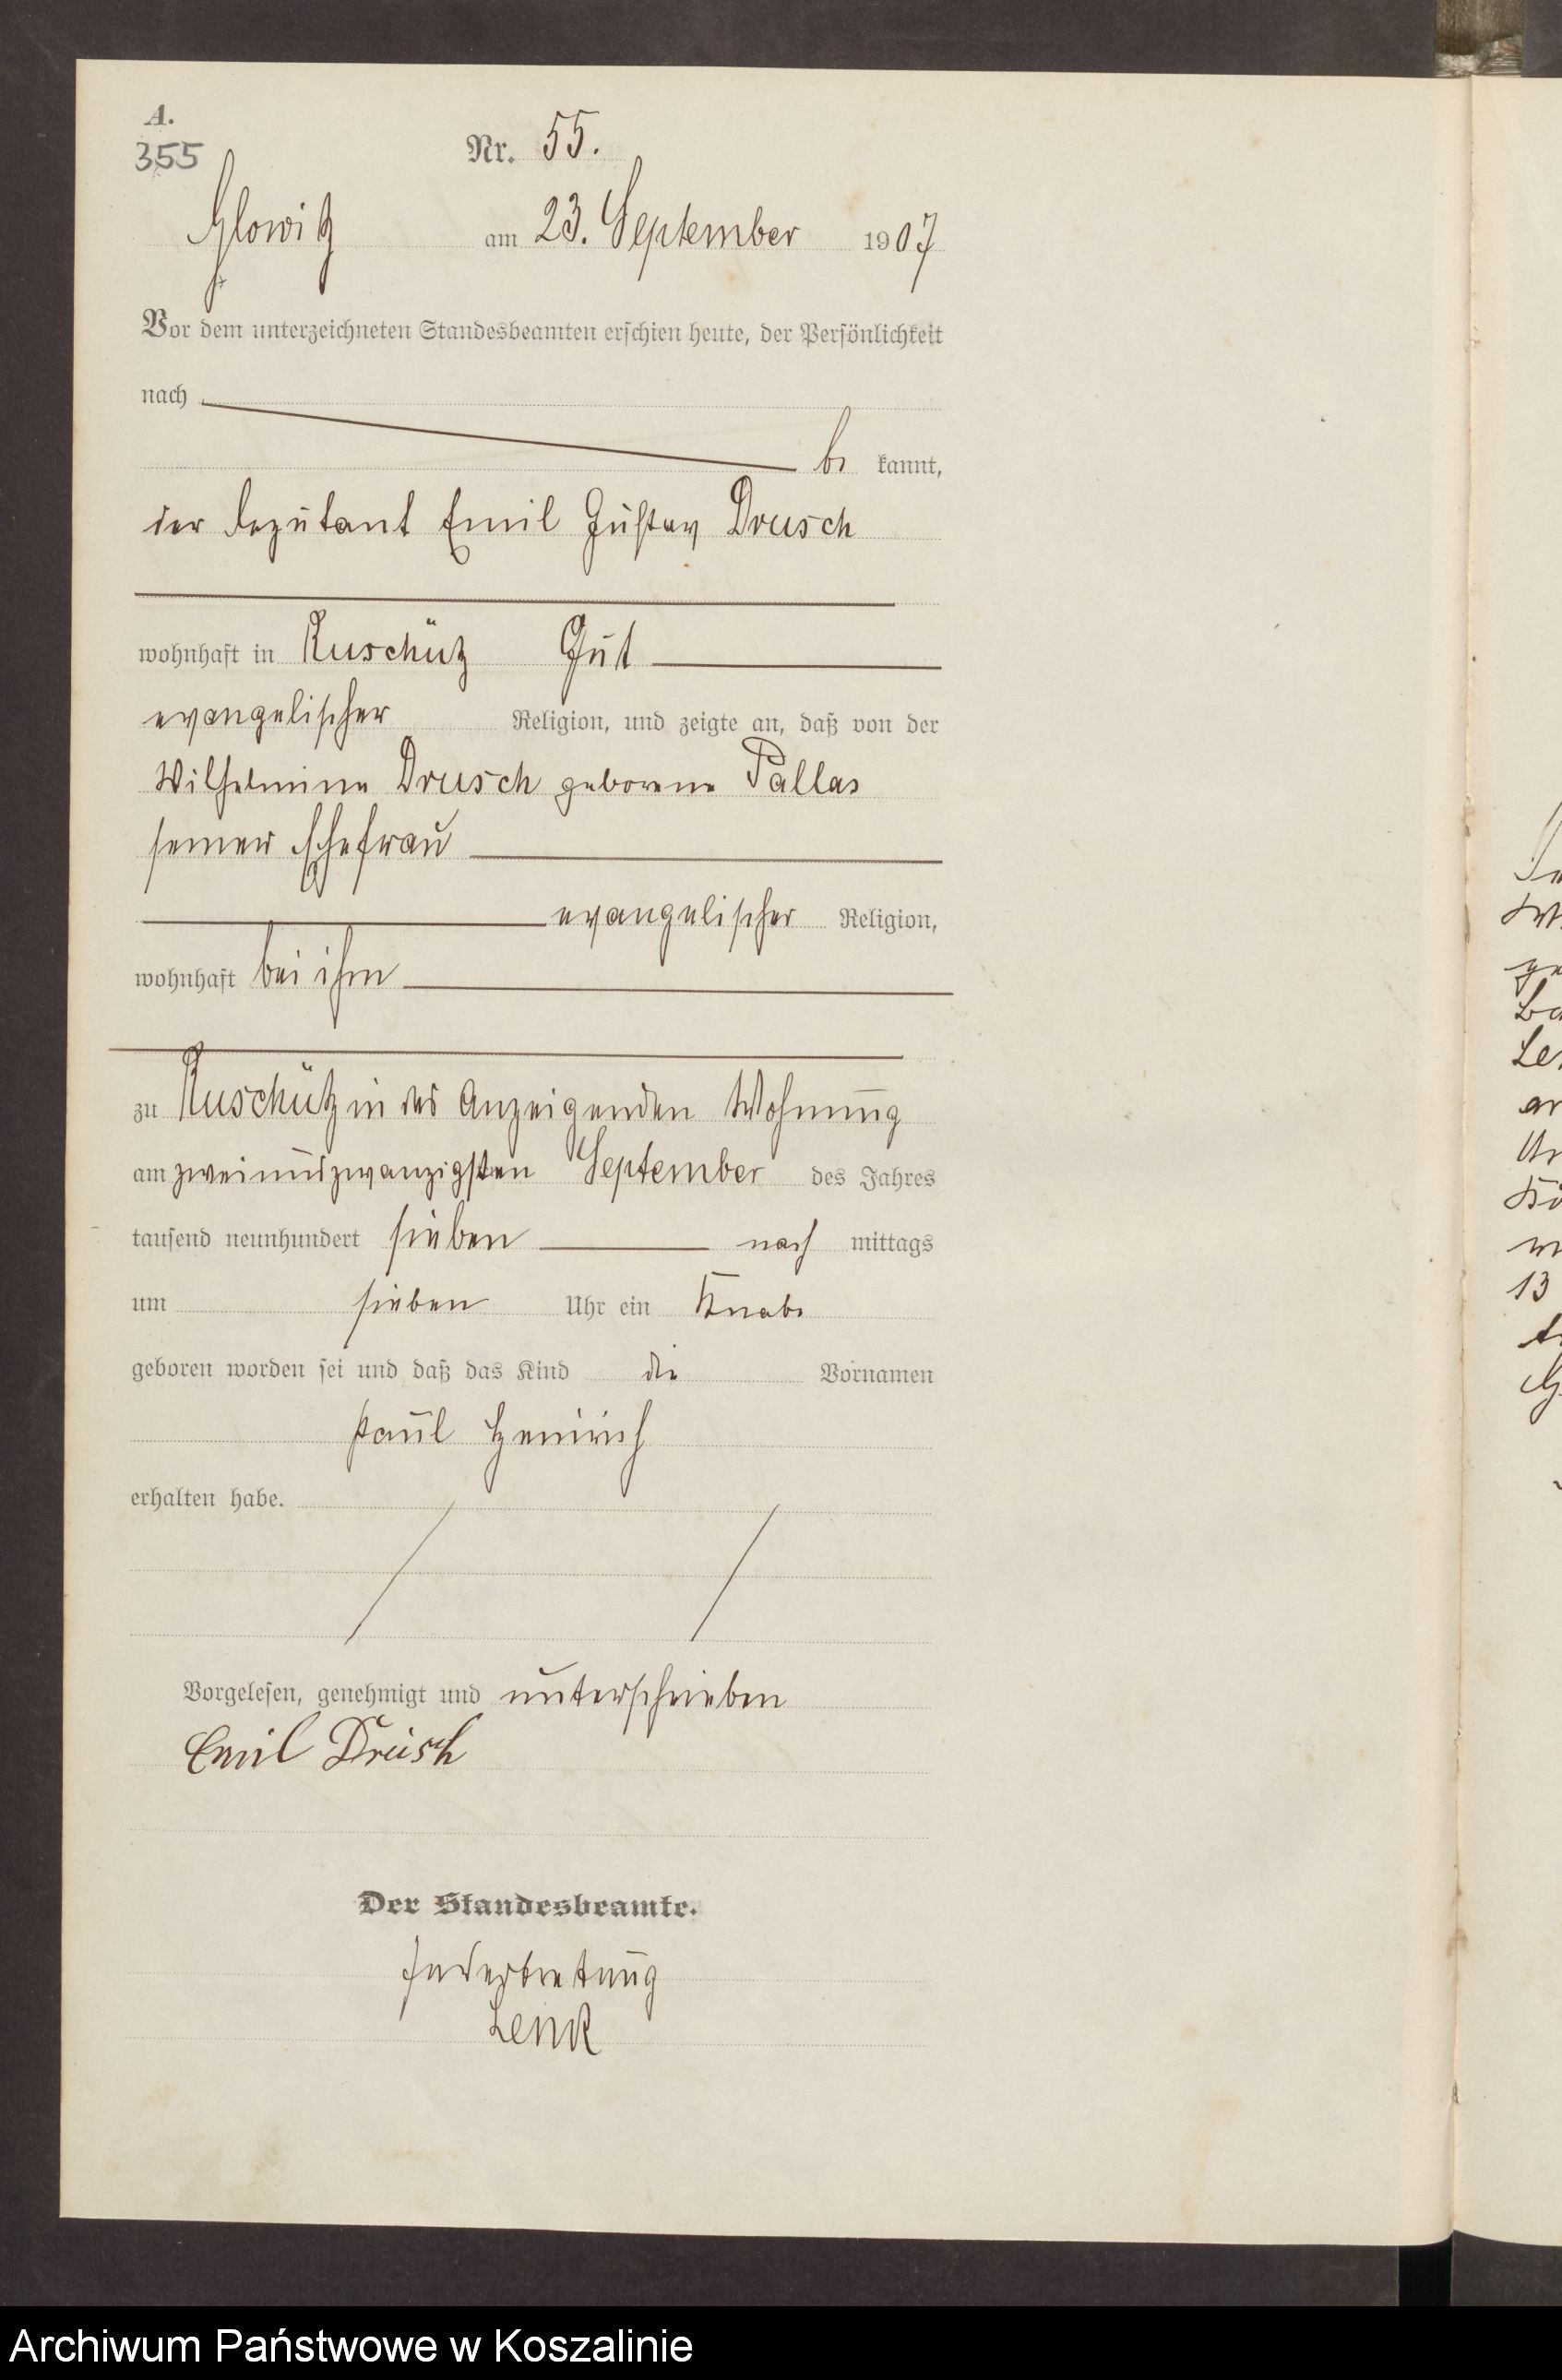 A.
355
Nr. 55.
Glowitz am 23. September 1907
Vor dem unterzeichneten Standesbeamten erschien heute, der Persönlichkeit
nach
be kannt,
der Deputant Emil Gustav Drusch
wohnhaft in Ruschütz Gut
evangelischer Religion, und zeigte an, daß von der
Wilhelmine Drusch geborene Pallas
seiner Ehefrau
evangelischer Religion,
wohnhaft bei ihm
zu Ruschütz in des Anzeigenden Wohnung
am zweiundzwanzigsten September des Jahres
tausend neunhundert sieben nach mittags
um sieben Uhr ein Knabe
geboren worden sei und daß das Kind die Vornamen
Paul Heinrich
erhalten habe.
Vorgelesen, genehmigt und unterschrieben
Emil Drusch
Der Standesbeamte.
In Vertretung
Lenk
13
Archiwum Państwowe w Koszalinie